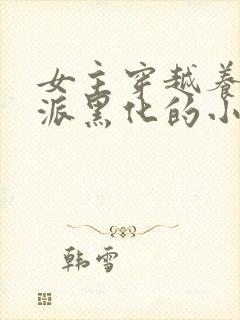 女主穿越养
派黑化的小
韩雪